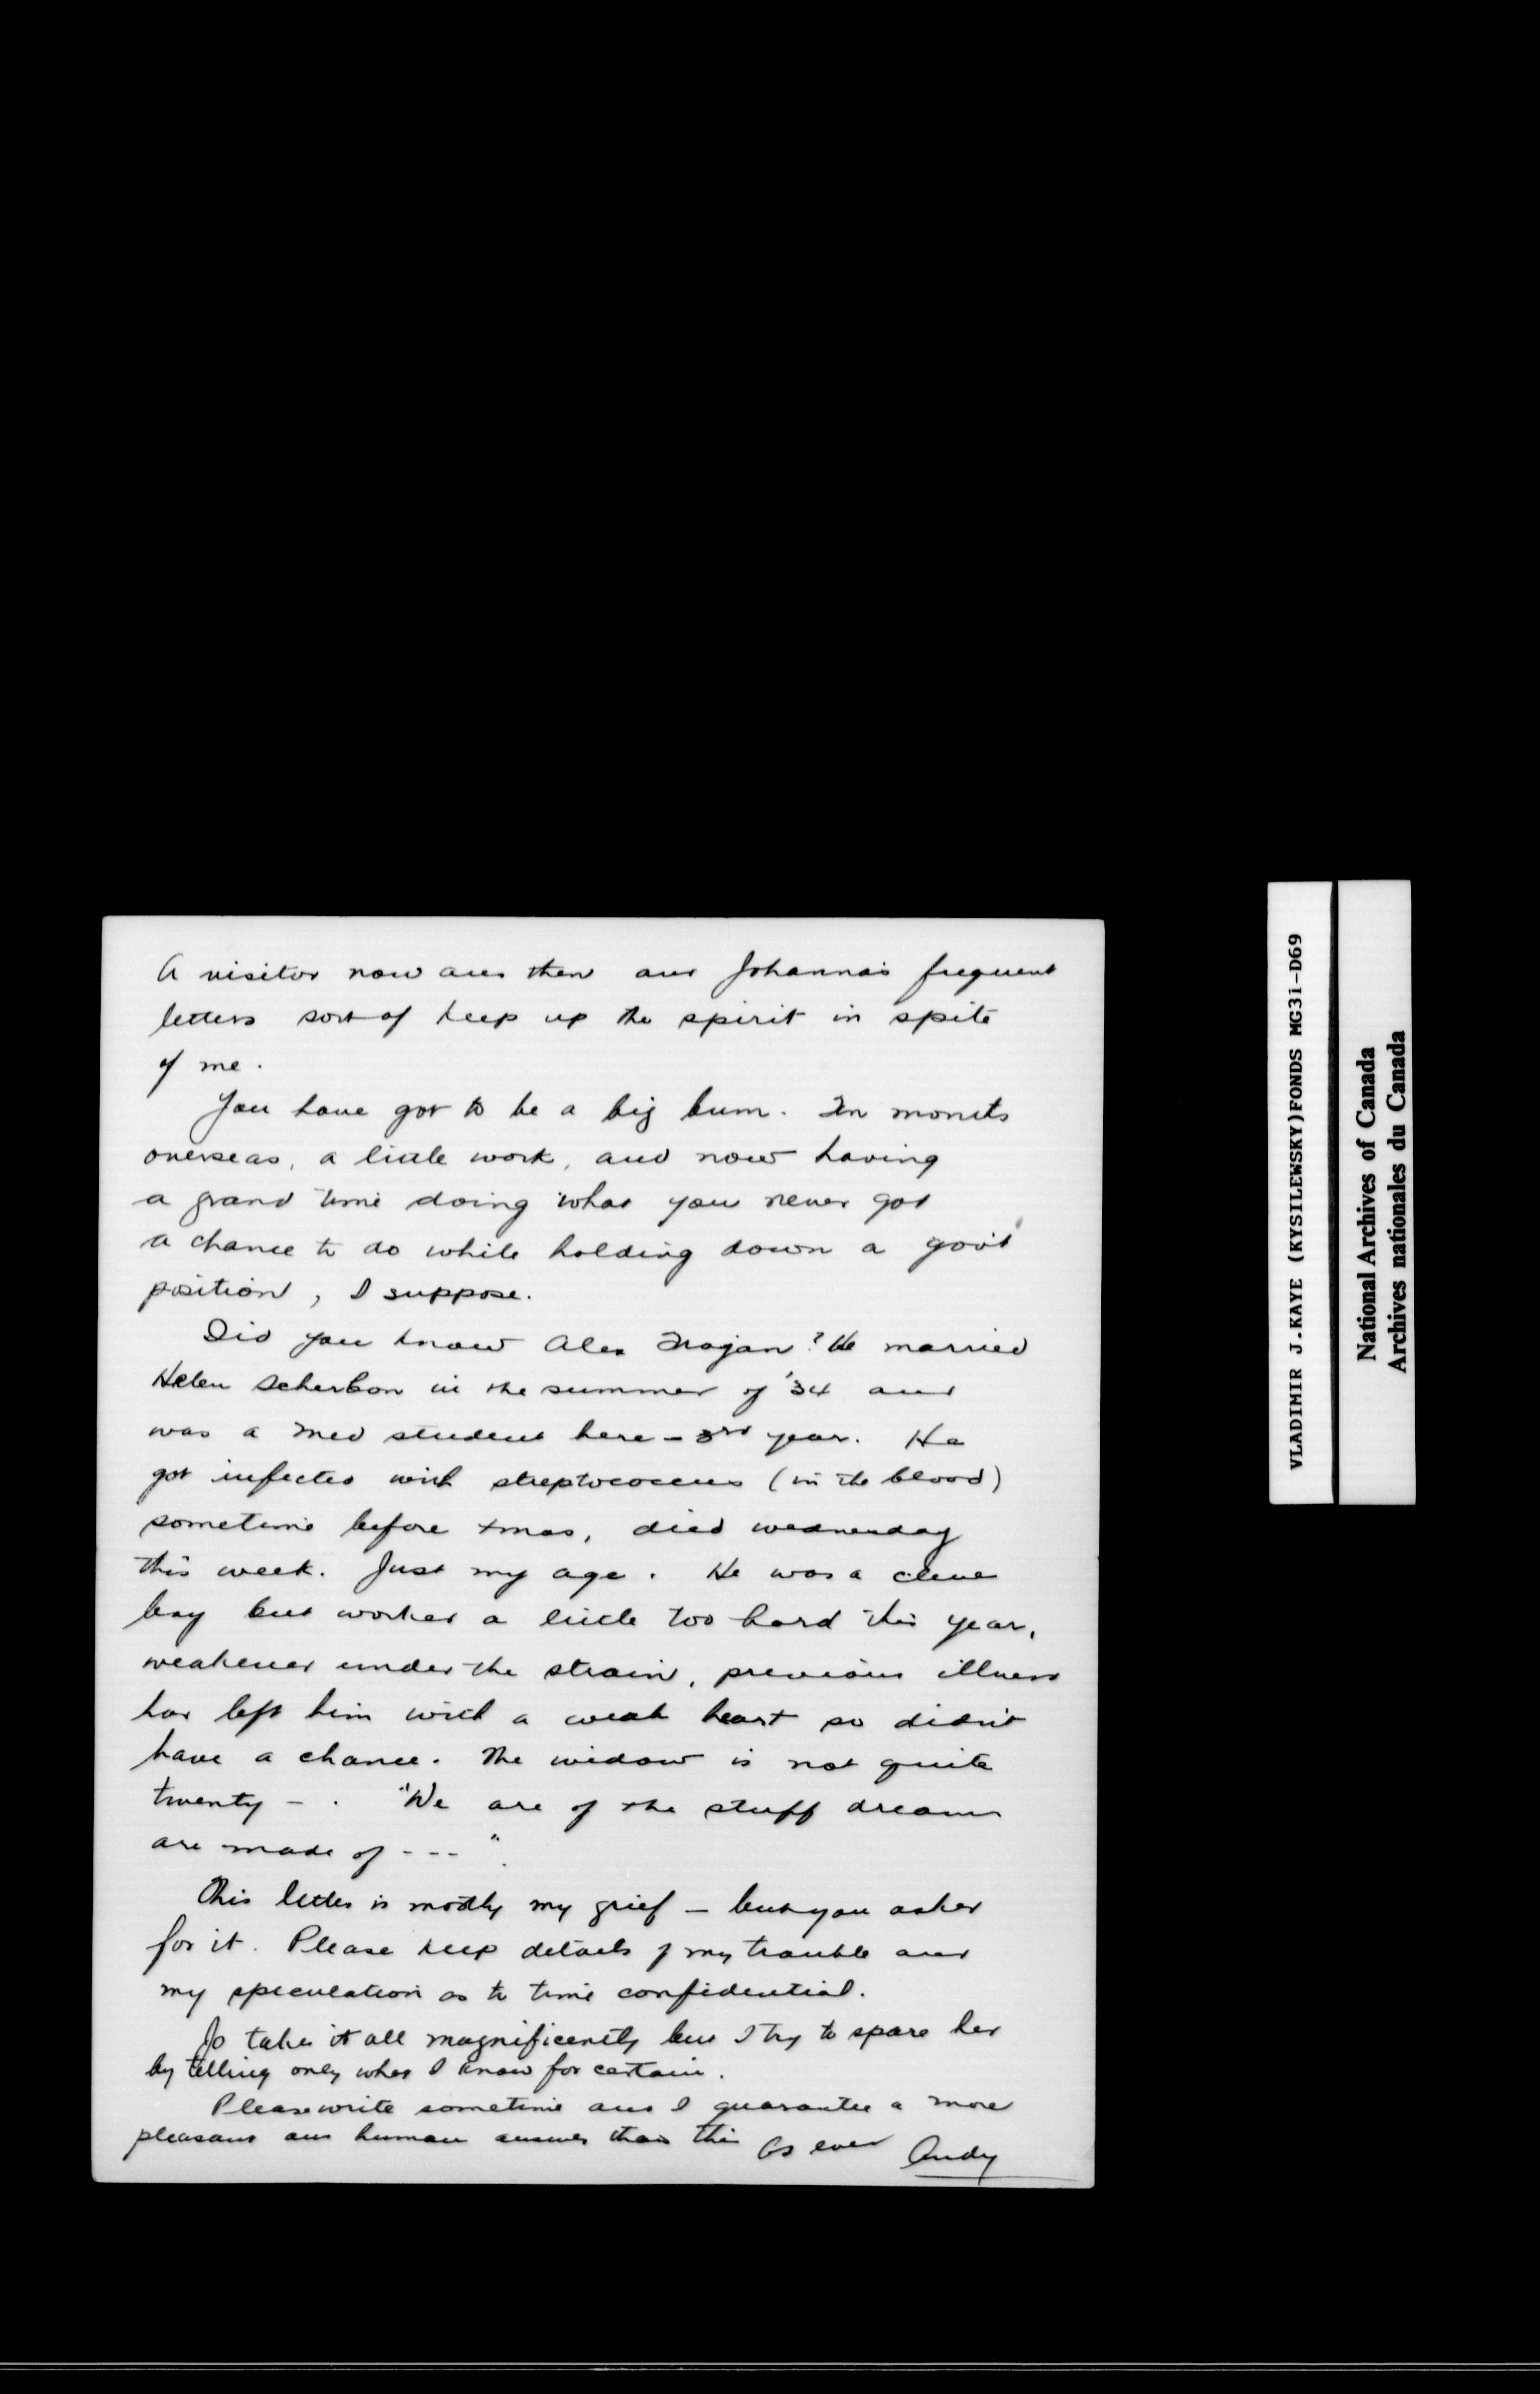 A visitor now and then and Johanna's frequent
letters sort of keep up the spirit in spite
of me.
You have got to be a big bum. months
overseas, a little work, and now having
a grand time doing what you never got
a chance to do while holding down a gov't
position, I suppose.
Did you know Alex ? He married
Helen in the summer of '34 and
was a Med student here – 3rd year. He
got infected with streptococcus (in the blood)
sometime before Xmas, died Wednesday
this week. Just my age. He was a clever
boy but worked a little too hard this year,
weakened under the strain, previous illness
had left him with a weak heart so didn't
have a chance. The widow is not quite
twenty – . "We are of the stuff dreams
are made of - - - ".
This letter is mostly my grief – but you asked
for it. Please keep details of my trouble and
my speculation as to time confidential.
Jo takes it all magnificently but I try to spare her
by telling only what I know for certain.
Please write sometime and I guarantee a more
pleasant and human answer than this As ever Andy
VLADIMIR J.KAYE (KYSILEWSKY)FONDS MG31-D69
National Archives of Canada
Archives nationales du Canada